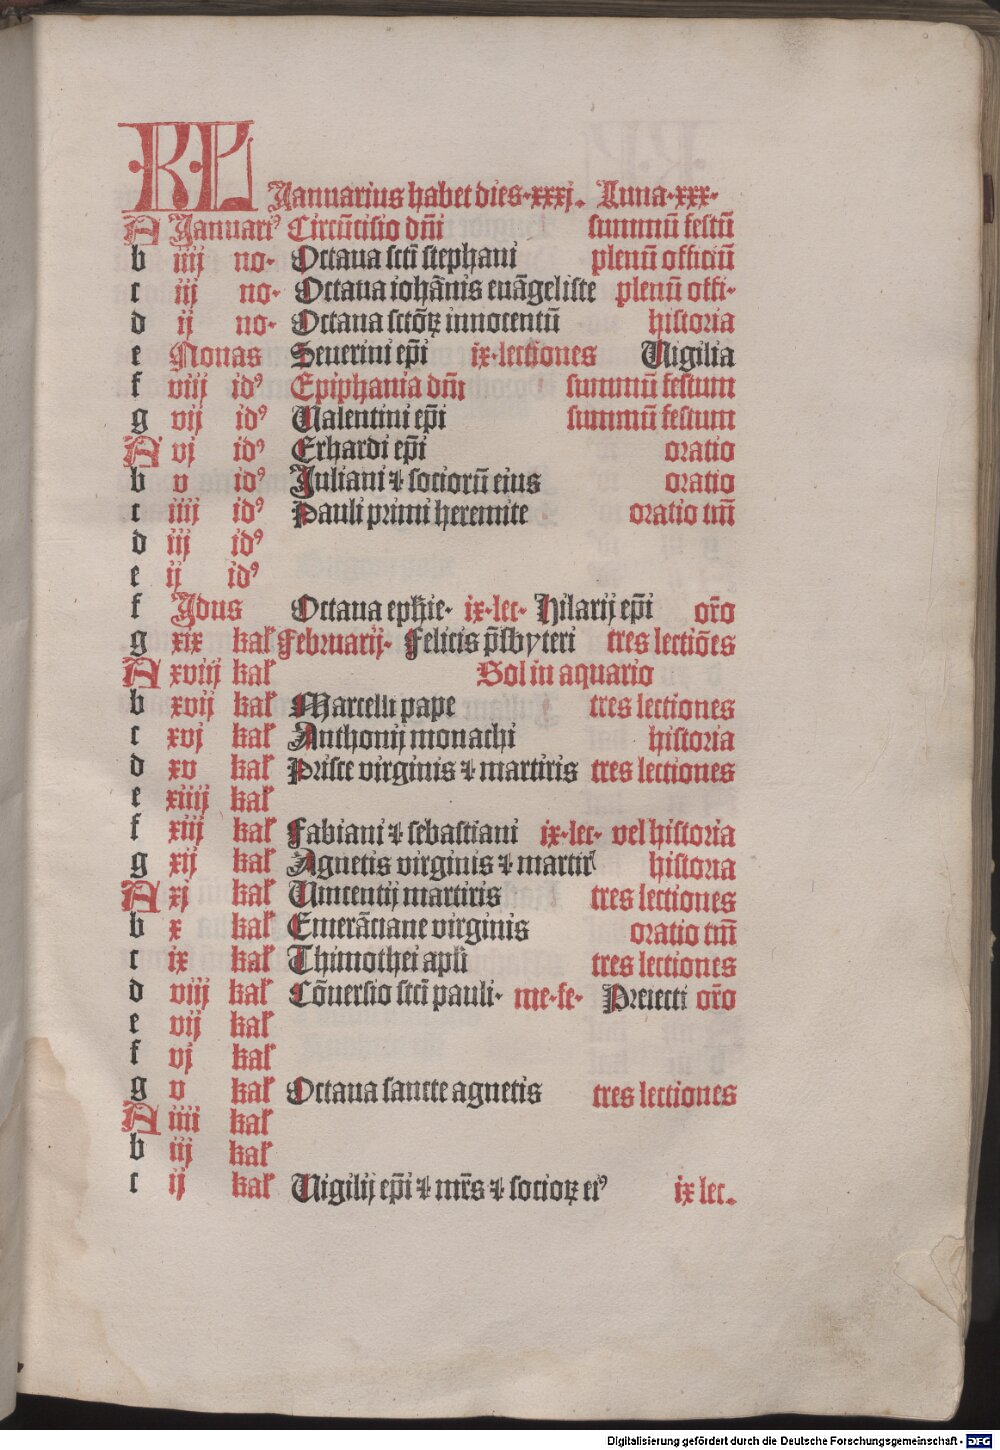 KL Januarius habet dies·xxxj. Luna·xxx·
A Januariꝰ Circũcisio dñi summũ festũ
b iiij no· Octaua scti stephani plenũ officiũ
c iij no· Octaua iohãnis euãgeliste plenũ offi·
d ij no· Octaua sctõꝝ innocentũ historia
e Nonas Seuerini ep̃i ix·lectiones Uigilia
f viij idꝰ Epiphania dñi summũ festum
g vij idꝰ Ualentini ep̃i summũ festum
A vj idꝰ Erhardi ep̃i oratio
b v idꝰ Juliani ⁊ sociorũ eius oratio
c iiij idꝰ Pauli primi heremite oratio tm̃
d iij idꝰ
e ij idꝰ
f Jdus Octaua ephie· ix·lec· Hilarij ep̃i oro
g xix kal Februarij· Felicis p̃sbyteri tres lectiões
A xviij kal Sol in aquario
b xvij kal Marcelli pape tres lectiones
c xvj kal Anthonij monachi historia
d xv kal Prisce virginis ⁊ martiris tres lectiones
e xiiij kal
f xiij kal Fabiani ⁊ sebastiani ix·lec· vel historia
g xij kal Agnetis virginis ⁊ martir historia
A xj kal Uincentij martiris tres lectiones
b x kal Emerãciane virginis oratio tm̃
c ix kal Thimothei apli tres lectiones
d viij kal Cõuersio scti pauli· me·fe· Preiecti oro
e vij kal
f vj kal
g v kal Octaua sancte agnetis tres lectiones
A iiij kal
b iij kal
c ij kal Uigilij ep̃i ⁊ mr̃s ⁊ socioꝝ eiꝰ ix lec.
Digitalisierung gefördert durch die Deutsche Forschungsgemeinschaft - DFG